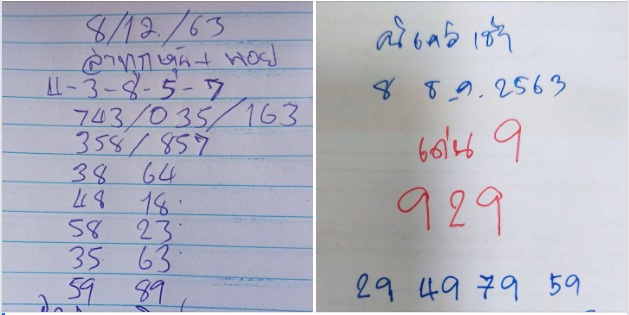 8/12/63
ลาวทุกหุ้น + พอย
4-3-8-5-7
743/035/163
358/857
38 64
48 18
58 23
35 63
59 89
นิเคอิ เช้า
8 ธ.ค. 2563
เด่น 9
929
29 49 79 59